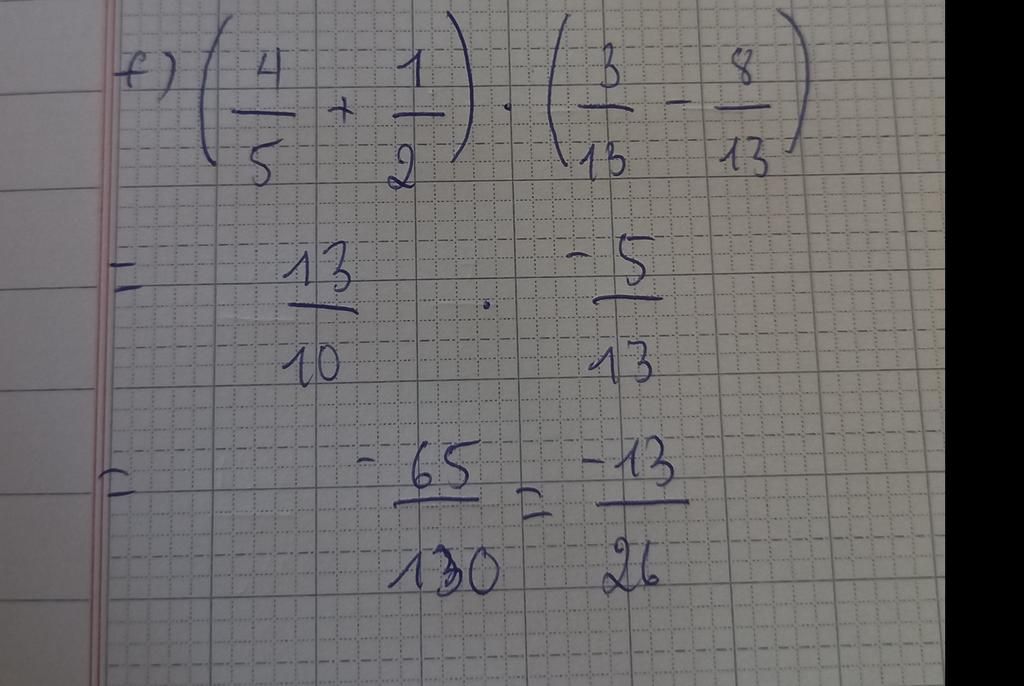 f) (4/5 + 1/2) · (3/13 - 8/13)
= 13/10 · -5/13
= -65/130 = -13/26